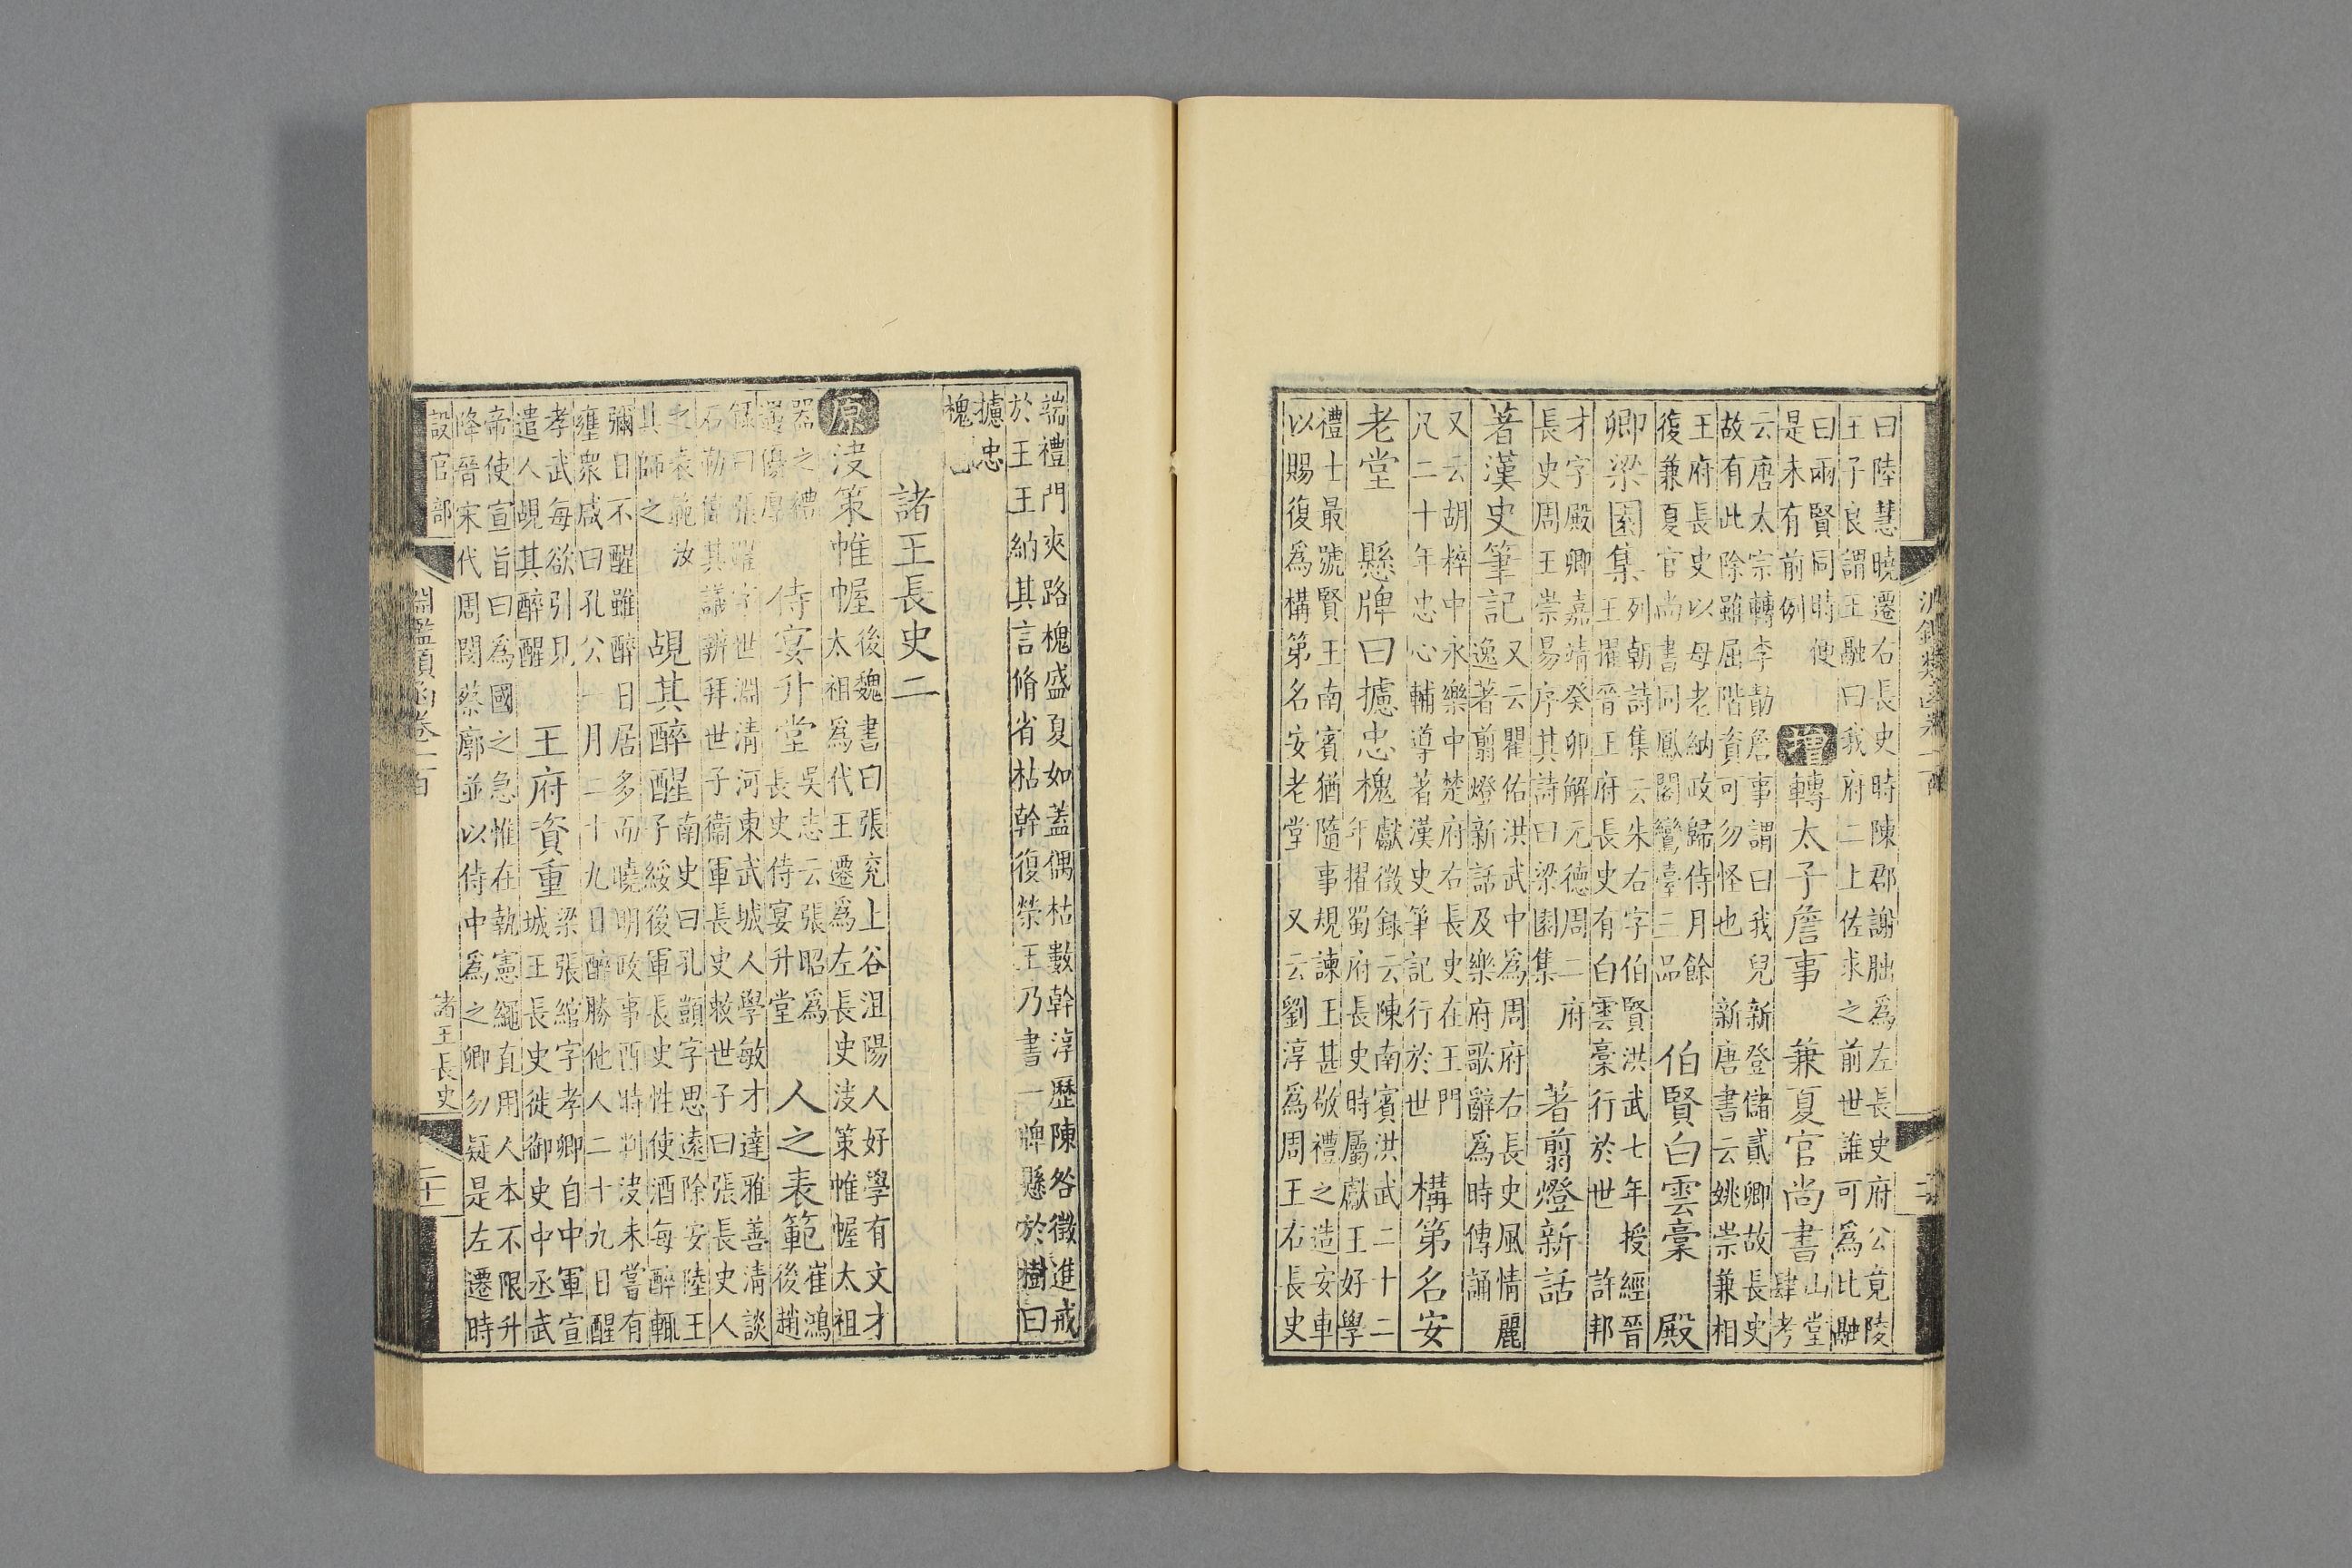 曰陸慧曉遷右長史時陳郡謝朏為左長史府公竟陵
王子良謂王融曰我府二上佐求之前世誰可為比融
曰兩賢同時便
是未有前例
增 轉太子詹事 兼夏官尚書
山堂
肆考
云唐太宗轉李勣詹事謂曰我兒新登儲貳卿故長史
故有此除雖屈階資可勿怪也 新唐書云姚崇兼相
王府長史以母老納政歸侍月餘
復兼夏官尚書同鳳閣鸞臺三品
伯賢白雲稾 殿
卿梁園集
列朝詩集云朱右字伯賢洪武七年授經晉
王擢晉王府長史有白雲稾行於世 許邦
才字殿卿嘉靖癸卯解元德周二府
長史周王崇易序其詩曰梁園集
著翦燈新話
著漢史筆記
又云瞿佑洪武中為周府右長史風情麗
逸著翦燈新話及樂府歌辭為時傳誦
又云胡粹中永樂中楚府右長史在王門
凡二十年忠心輔導著漢史筆記行於世
構第名安
老堂 懸牌曰攄忠槐
獻徵錄云陳南賓洪武二十二
年擢蜀府長史時屬獻王好學
禮士最號賢王南賓猶隨事規諫王甚敬禮之造安車
以賜復為構第名安老堂 又云劉淳為周王右長史
端禮門夾路槐盛夏如蓋偶枯數幹淳歷陳咎徵進戒
於王王納其言脩省枯幹復榮王乃書一牌懸於樹曰
攄忠
槐
諸王長史二
原 決策帷幄
後魏書曰張兗上谷沮陽人好學有文才
太祖為代王遷為左長史決策帷幄太祖
器之禮
遇優厚
侍宴升堂
吳志云張昭為
長史侍宴升堂
人之表範
崔鴻
後趙
錄曰張躍字世淵清河東武城人學敏才達雅善清談
石勒備其議辨拜世子衞軍長史敕世子曰張長史人
之表範汝
其師之
覘其醉醒
南史曰孔顗字思遠除安陸王
子綏後軍長史性使酒每醉輒
彌日不醒雖醉日居多而曉明政事酉時判決未嘗有
壅衆咸曰孔公一月二十九日醉勝他人二十九日醒
孝武每欲引見
遣人覘其醉醒
王府資重
梁張綰字孝卿自中軍宣
城王長史徙御史中丞武
帝使宣旨曰為國之急惟在執憲繩直用人本不限升
降晉宋代周閔蔡廓並以侍中為之卿勿疑是左遷時
設官部
淵鑑類函卷一百
諸王長史